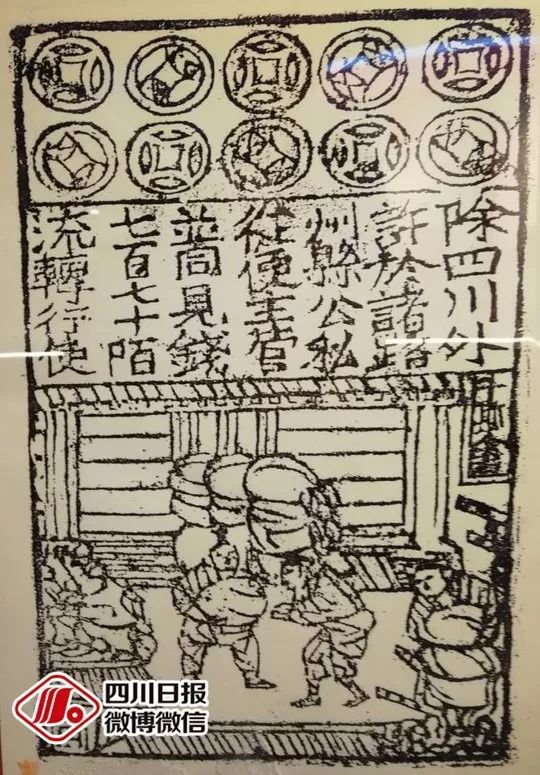 除四川外
許於諸路
州縣公私
從便主管
並同見錢
七百七十陌
流轉行使
四川日报
微博微信